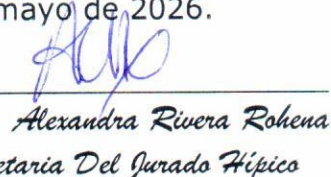 mayo de 2026.
Alexandra Rivera Rohena
etaria Del Jurado Hípico